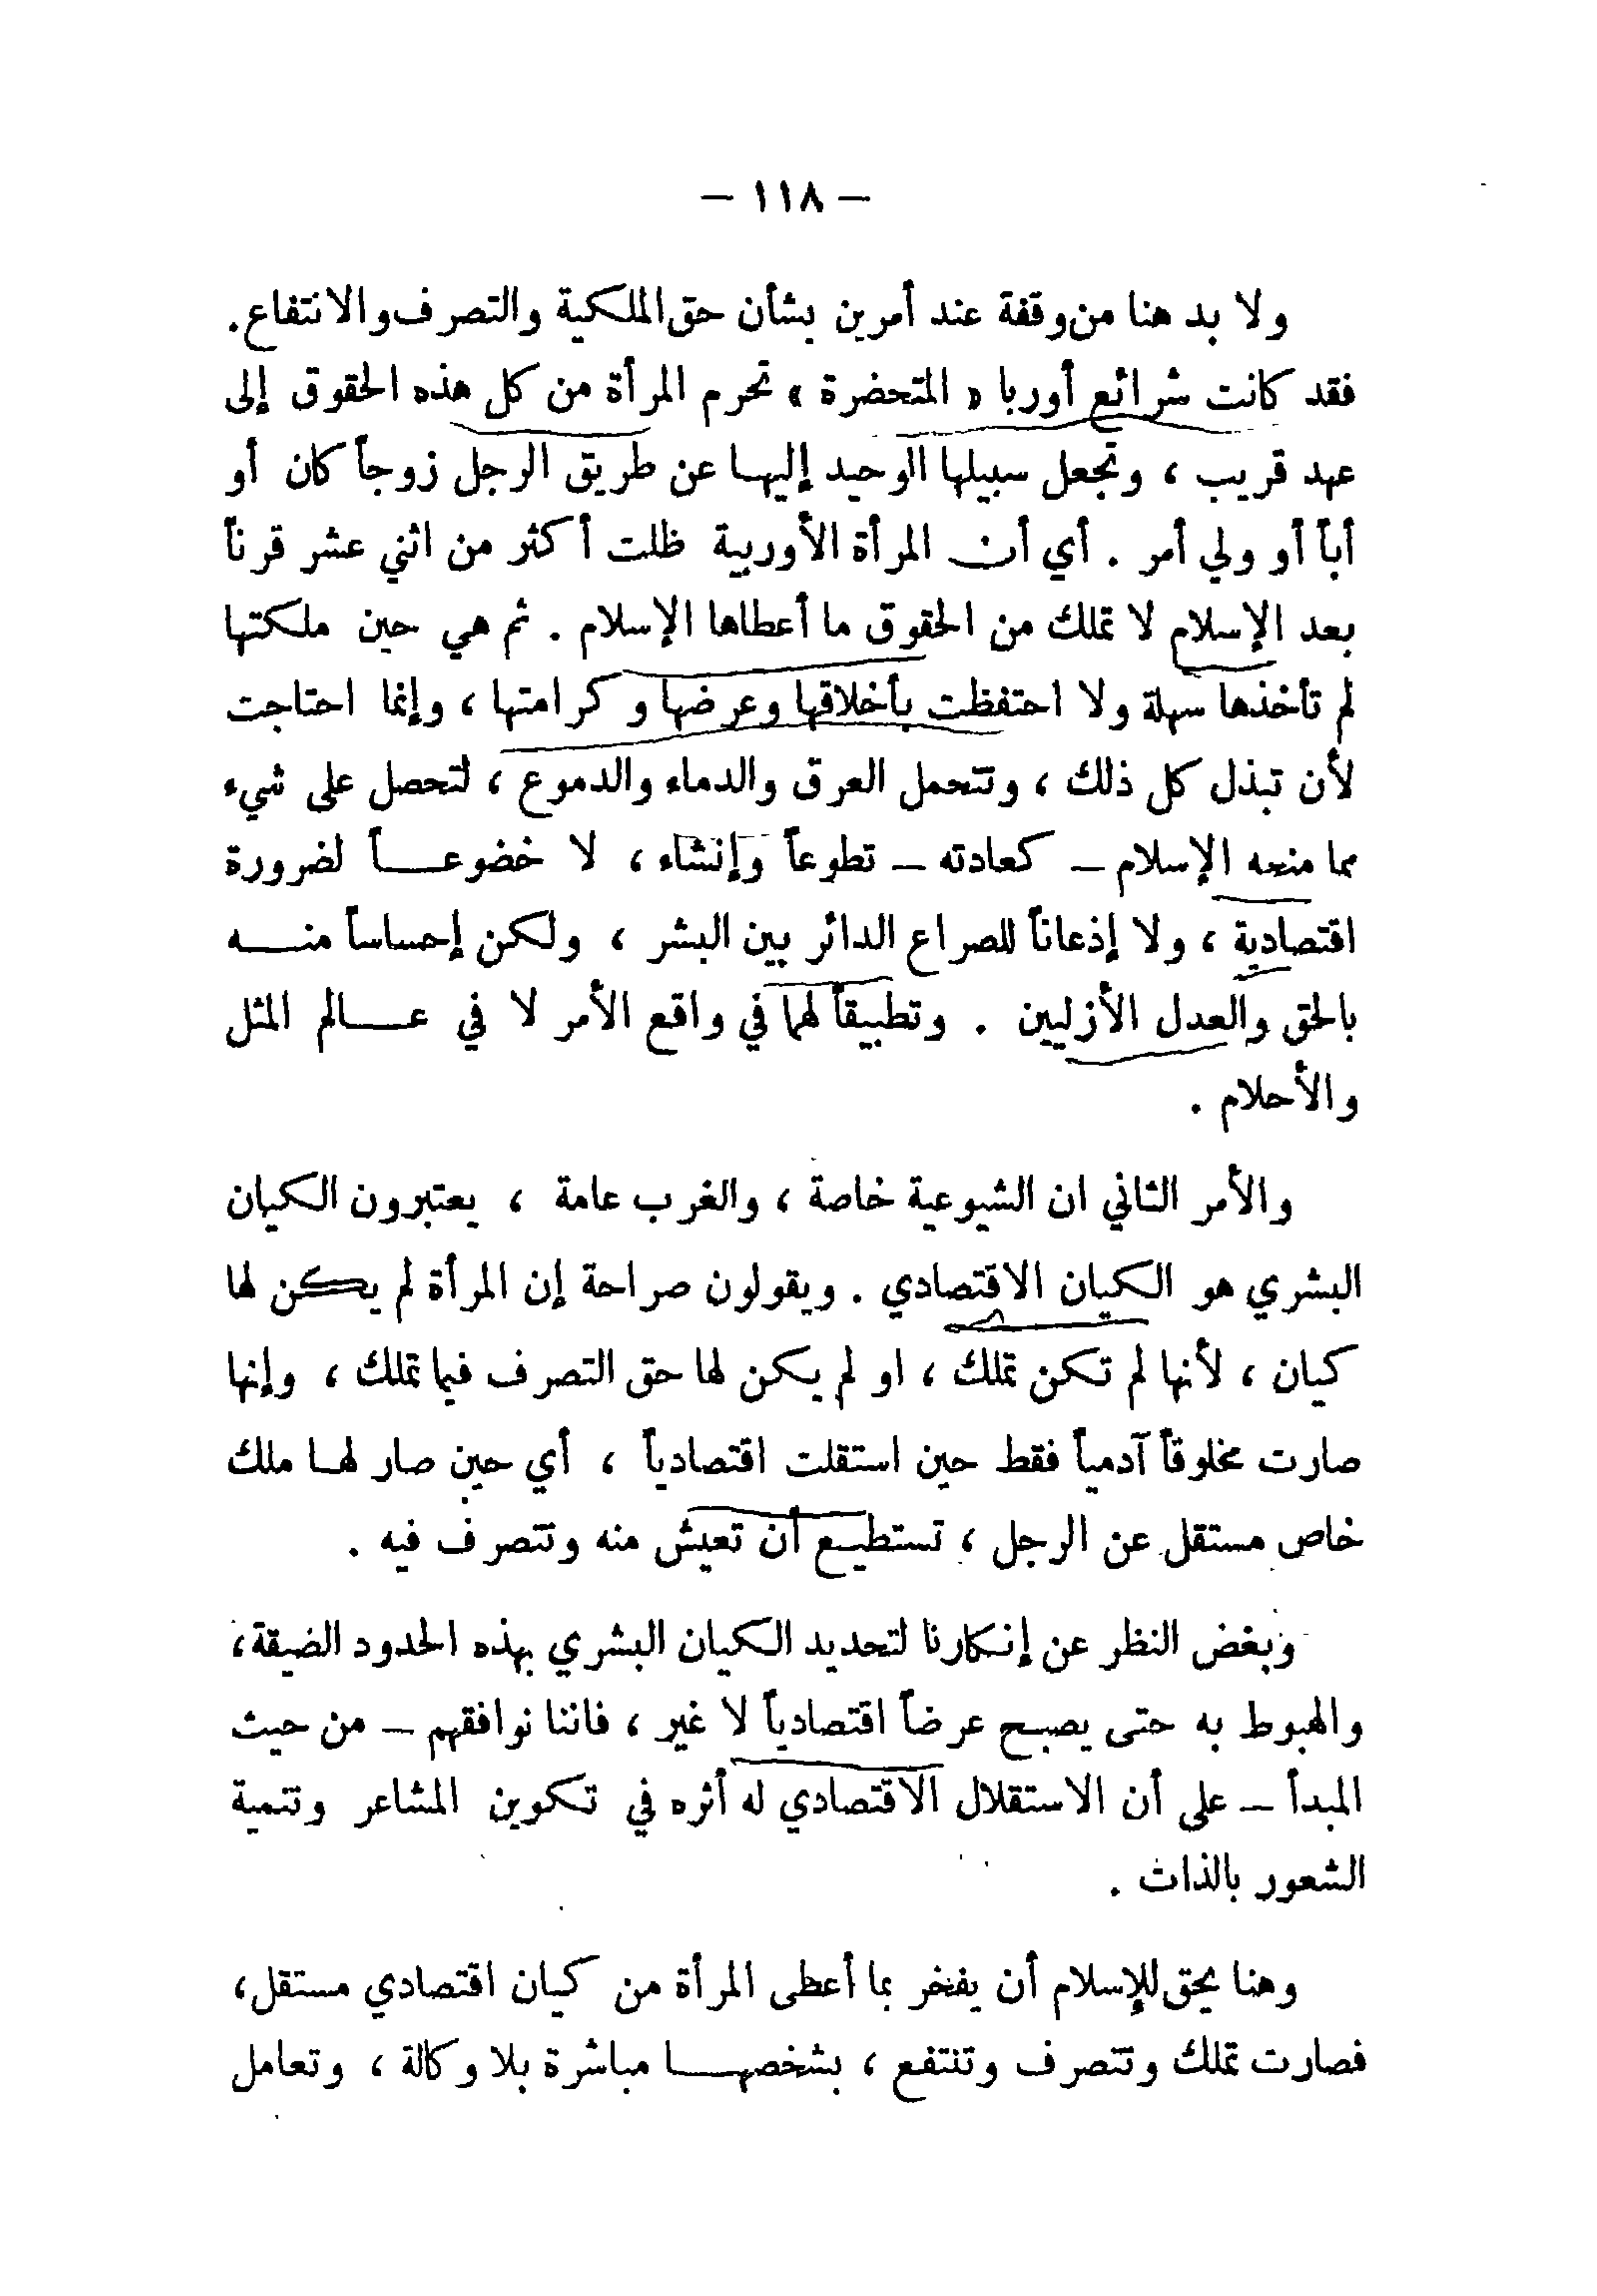 — ١١٨ —
ولا بد هنا من وقفة عند أمرين بشأن حق الملكية والتصرف والانتفاع.
فقد كانت شرائع أوربا « المتحضرة » تحرم المرأة من كل هذه الحقوق إلى
عهد قريب ، وتجعل سبيلها الوحيد إليها عن طريق الرجل زوجاً كان أو
أباً أو ولي أمر . أي أن المرأة الأوربية ظلت أكثر من اثني عشر قرناً
بعد الإسلام لا تملك من الحقوق ما أعطاها الإسلام . ثم هي حين ملكتها
لم تأخذها سهلة ولا احتفظت بأخلاقها وعرضها وكرامتها ، وإنما احتاجت
لأن تبذل كل ذلك ، وتتحمل العرق والدماء والدموع ، لتحصل على شيء
مما منحه الإسلام – كعادته – تطوعاً وإنشاء ، لا خضوعاً لضرورة
اقتصادية ، ولا إذعاناً للصراع الدائر بين البشر ، ولكن إحساساً منه
بالحق والعدل الأزليين . وتطبيقاً لهما في واقع الأمر لا في عالم المثل
والأحلام .
والأمر الثاني ان الشيوعية خاصة ، والغرب عامة ، يعتبرون الكيان
البشري هو الكيان الاقتصادي . ويقولون صراحة إن المرأة لم يكن لها
كيان ، لأنها لم تكن تملك ، او لم يكن لها حق التصرف فيما تملك ، وإنها
صارت مخلوقاً آدمياً فقط حين استقلت اقتصادياً ، أي حين صار لها ملك
خاص مستقل عن الرجل ، تستطيع أن تعيش منه وتتصرف فيه .
وبغض النظر عن إنكارنا لتحديد الكيان البشري بهذه الحدود الضيقة،
والهبوط به حتى يصبح عرضاً اقتصادياً لا غير ، فاننا نوافقهم – من حيث
المبدأ – على أن الاستقلال الاقتصادي له أثره في تكوين المشاعر وتنمية
الشعور بالذات .
وهنا يحق للإسلام أن يفخر بما أعطى المرأة من كيان اقتصادي مستقل،
فصارت تملك وتتصرف وتنتفع ، بشخصها مباشرة بلا وكالة ، وتعامل